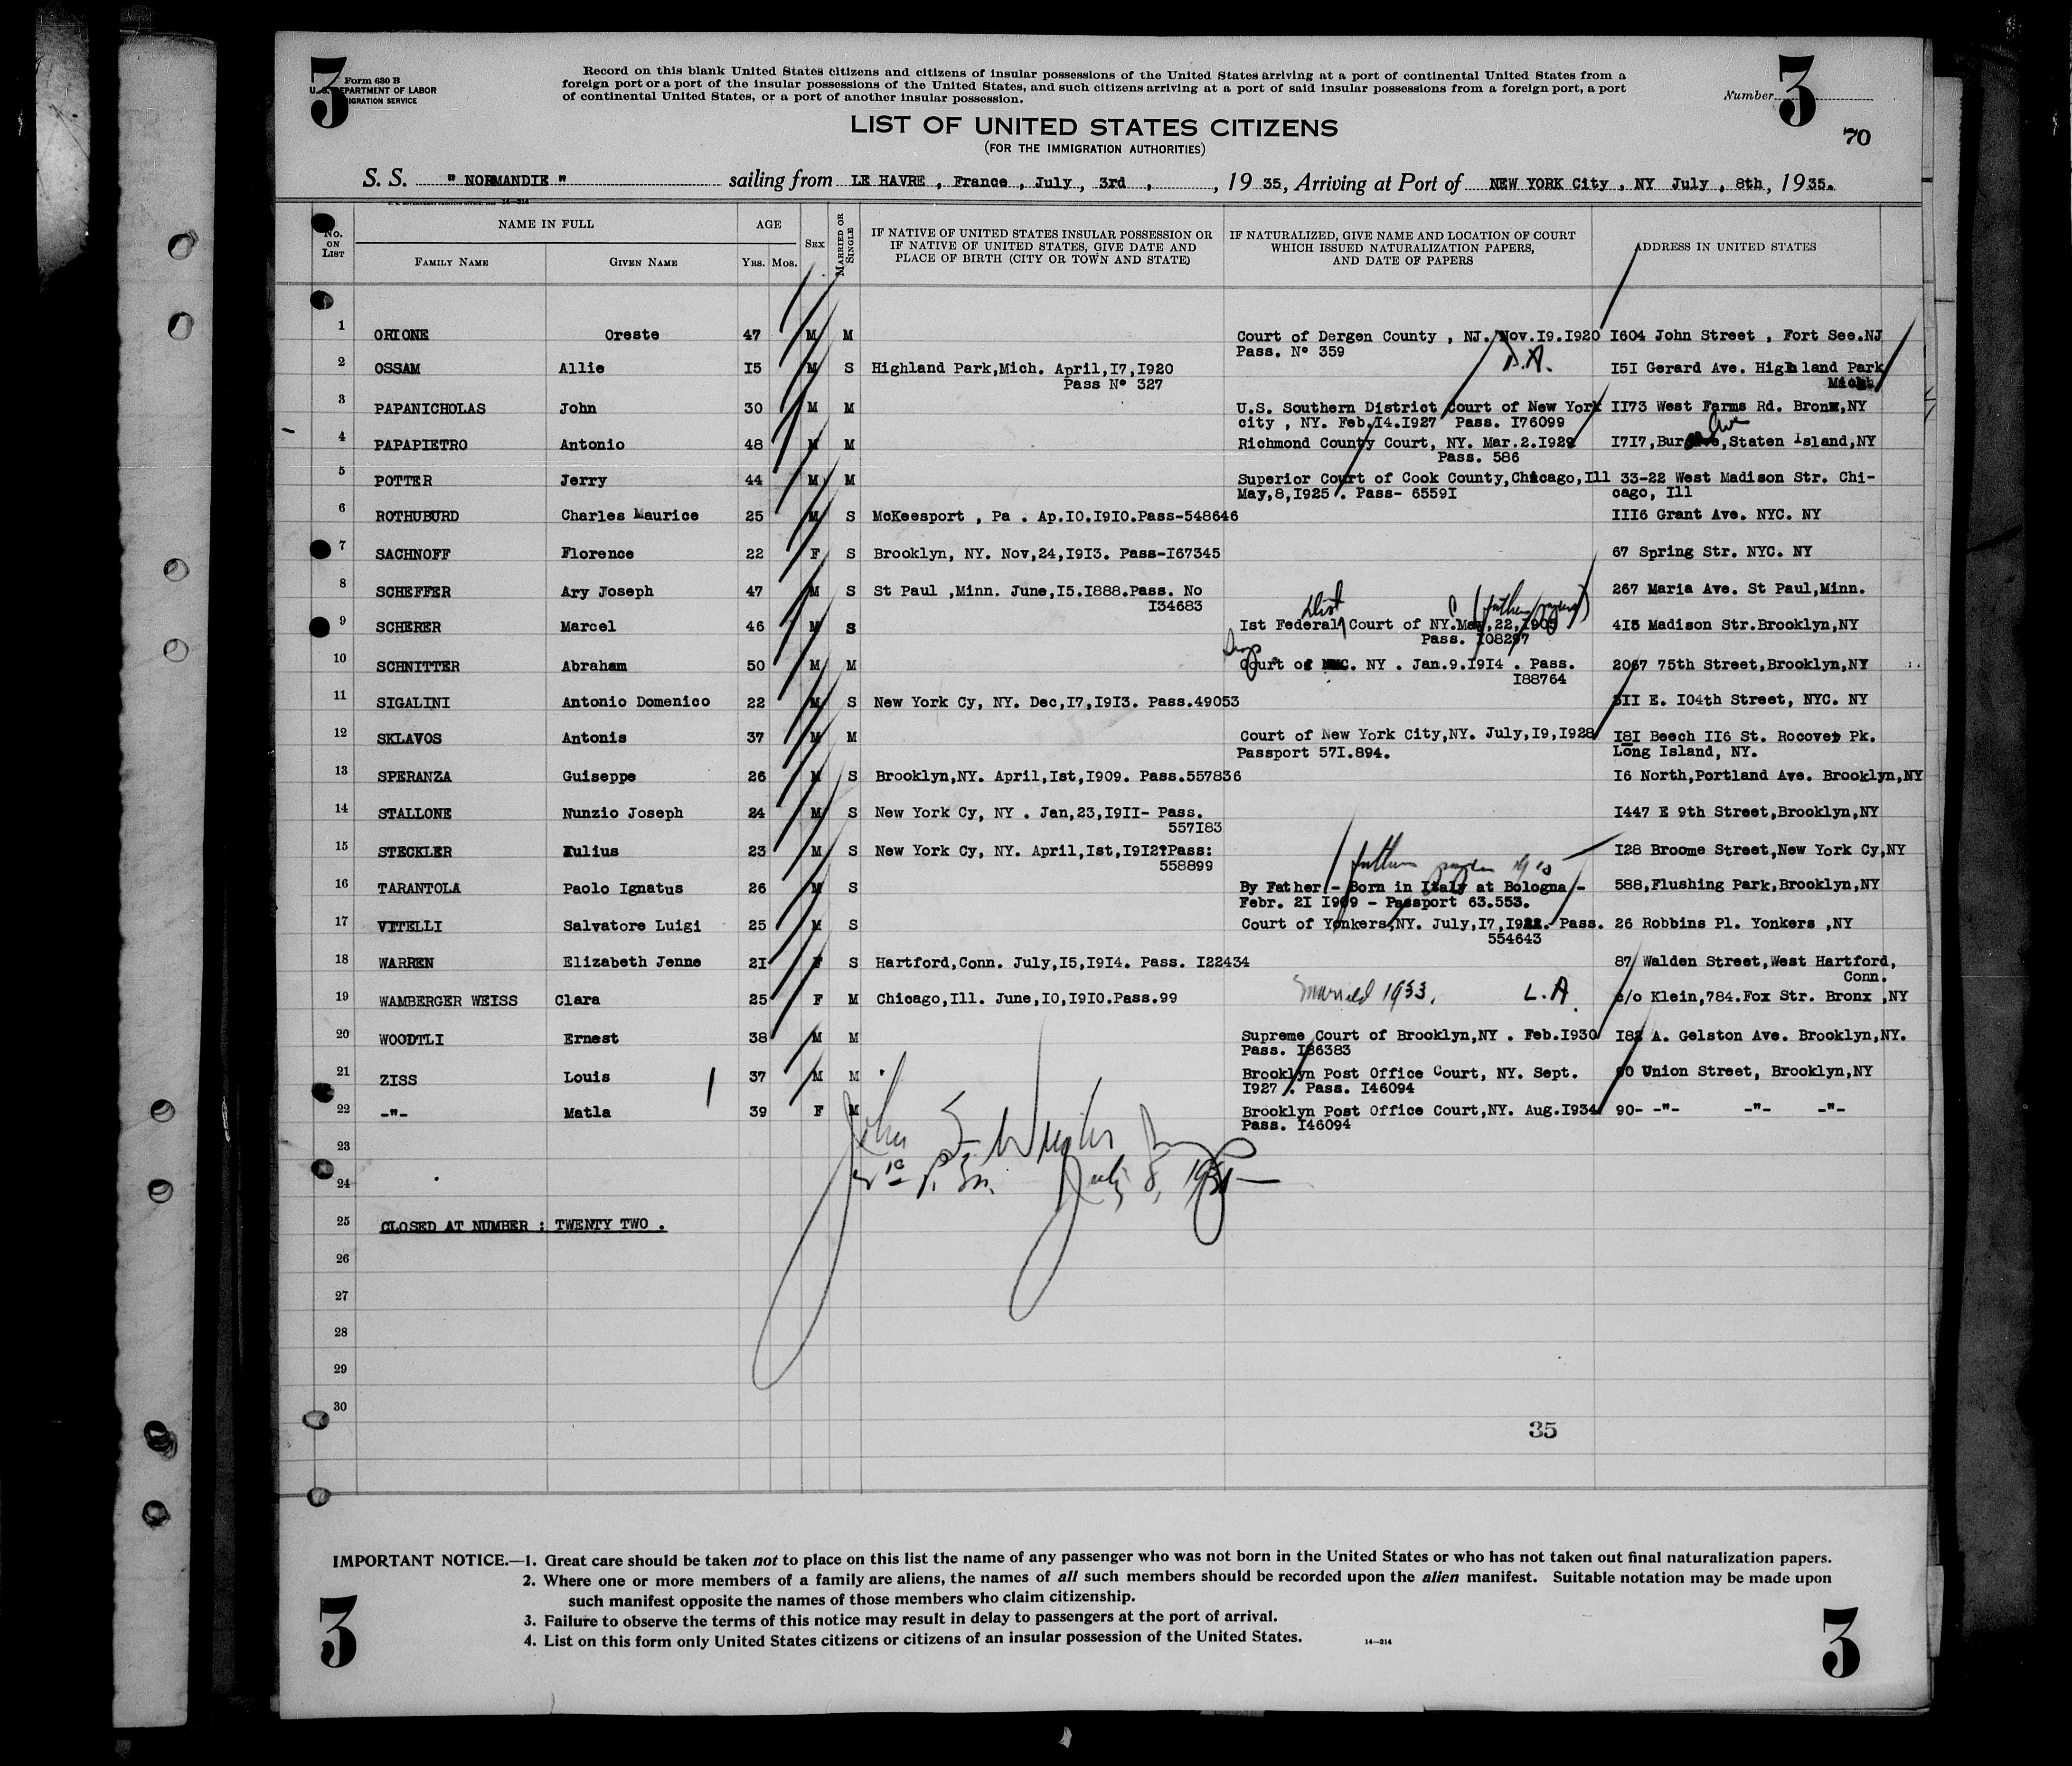 3 Form 630 B
U. S. DEPARTMENT OF LABOR
IMMIGRATION SERVICE
Record on this blank United States citizens and citizens of insular possessions of the United States arriving at a port of continental United States from a
foreign port or a port of the insular possessions of the United States, and such citizens arriving at a port of said insular possessions from a foreign port, a port
of continental United States, or a port of another insular possession.
Number 3
70
LIST OF UNITED STATES CITIZENS
(FOR THE IMMIGRATION AUTHORITIES)
S. S. " NORMANDIE " sailing from LE HAVRE , France , July , 3rd , , 19 35, Arriving at Port of NEW YORK City , NY July , 8th, 19 35.
No. ON LIST
NAME IN FULL
FAMILY NAME GIVEN NAME
AGE
YRS. MOS.
SEX
MARRIED OR SINGLE
IF NATIVE OF UNITED STATES INSULAR POSSESSION OR
IF NATIVE OF UNITED STATES, GIVE DATE AND
PLACE OF BIRTH (CITY OR TOWN AND STATE)
IF NATURALIZED, GIVE NAME AND LOCATION OF COURT
WHICH ISSUED NATURALIZATION PAPERS,
AND DATE OF PAPERS
ADDRESS IN UNITED STATES
1 ORIONE Oreste 47 M M Court of Dergen County , NJ. Nov.I9.I920 I604 John Street , Fort See.NJ
Pass. N° 359
2 OSSAM Allie I5 M S Highland Park,Mich. April,I7,I920 I5I Gerard Ave. High land Park
Pass N° 327 Mich
3 PAPANICHOLAS John 30 M M U.S. Southern District Court of New York II73 West Farms Rd. Bronx,NY
city , NY. Feb.I4.I927 Pass. I76099
4 PAPAPIETRO Antonio 48 M M Richmond County Court, NY. Mar.2.I929 I7I7, Ave ,Staten Island,NY
Pass. 586
5 POTTER Jerry 44 M M Superior Court of Cook County,Chicago,Ill 33-22 West Madison Str. Chi-
May,8,I925 . Pass- 6559I cago, Ill
6 ROTHUBURD Charles Maurice 25 M S McKeesport , Pa . Ap.I0.I9I0.Pass-548646 III6 Grant Ave. NYC. NY
7 SACHNOFF Florence 22 F S Brooklyn, NY. Nov,24,I9I3. Pass-I67345 67 Spring Str. NYC. NY
8 SCHEFFER Ary Joseph 47 M S St Paul ,Minn. June,I5.I888.Pass. No 267 Maria Ave. St Paul,Minn.
I34683
Dist
9 SCHERER Marcel 46 M S Ist Federal Court of NY.May,22,I905 415 Madison Str.Brooklyn,NY
Pass. I08297
10 SCHNITTER Abraham 50 M M Court of C. NY . Jan.9.I9I4 . Pass. 2067 75th Street,Brooklyn,NY
I88764
11 SIGALINI Antonio Domenico 22 M S New York Cy, NY. Dec,I7,I9I3. Pass.49053 3II E. I04th Street, NYC. NY
12 SKLAVOS Antonis 37 M M Court of New York City,NY. July,I9,I928 I8I Beech II6 St. Rocover Pk.
Passport 57I.894. Long Island, NY.
13 SPERANZA Guiseppe 26 M S Brooklyn,NY. April,Ist,I909. Pass.557836 I6 North,Portland Ave. Brooklyn,NY
14 STALLONE Nunzio Joseph 24 M S New York Cy, NY . Jan,23,I9II- Pass. I447 E 9th Street,Brooklyn,NY
557I83
15 STECKLER Iulius 23 M S New York Cy, NY. April,Ist,I9I2?Pass: I28 Broome Street,New York Cy,NY
558899
16 TARANTOLA Paolo Ignatus 26 M S By Father - Born in Italy at Bologna - 588,Flushing Park,Brooklyn,NY
Febr. 2I I909 - Passport 63.553.
17 VITELLI Salvatore Luigi 25 M S Court of Yonkers,NY. July,I7,I922. Pass. 26 Robbins Pl. Yonkers ,NY
554643
18 WARREN Elizabeth Jenne 2I F S Hartford,Conn. July,I5,I9I4. Pass. I22434 87 Walden Street,West Hartford,
Conn.
19 WAMBERGER WEISS Clara 25 F M Chicago,Ill. June,I0,I9I0.Pass.99 Married 1933. L.A c/o Klein,784.Fox Str. Bronx ,NY
20 WOODTLI Ernest 38 M M Supreme Court of Brooklyn,NY . Feb.I930 I82 A. Gelston Ave. Brooklyn,NY.
Pass. I86383
21 ZISS Louis 37 M M Brooklyn Post Office Court, NY. Sept. 90 Union Street, Brooklyn,NY
I927 . Pass. I46094
22 -"- Matla 39 F M Brooklyn Post Office Court,NY. Aug.I934 90- -"- -"- -"-
Pass. I46094
23
24 July 8, 1935
25 CLOSED AT NUMBER : TWENTY TWO .
26
27
28
29
30
35
IMPORTANT NOTICE.—1. Great care should be taken not to place on this list the name of any passenger who was not born in the United States or who has not taken out final naturalization papers.
2. Where one or more members of a family are aliens, the names of all such members should be recorded upon the alien manifest. Suitable notation may be made upon
such manifest opposite the names of those members who claim citizenship.
3. Failure to observe the terms of this notice may result in delay to passengers at the port of arrival.
4. List on this form only United States citizens or citizens of an insular possession of the United States. 14—214
3 3